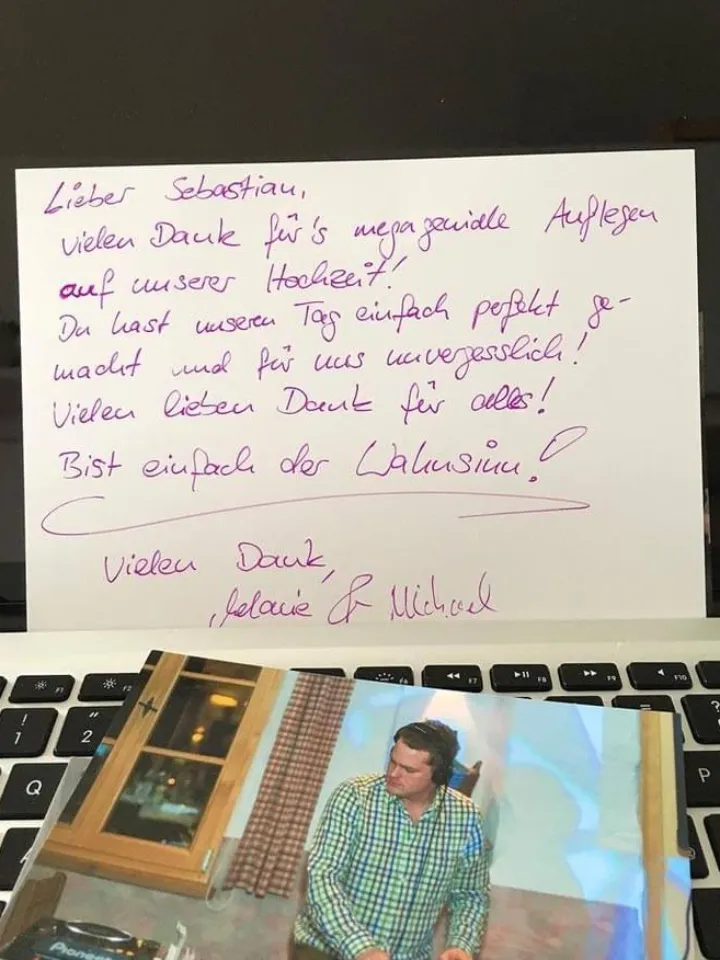 Lieber Sebastian,
vielen Dank für's megageniale Auflegen
auf unserer Hochzeit!
Du hast unseren Tag einfach perfekt ge-
macht und für uns unvergesslich!
Vielen lieben Dank für alles!
Bist einfach der Wahnsinn!
Vielen Dank,
& Michael
F1
F2
F6
F7
F8
F9
F10
!
1
"
2
?
Q
P
Pioneer